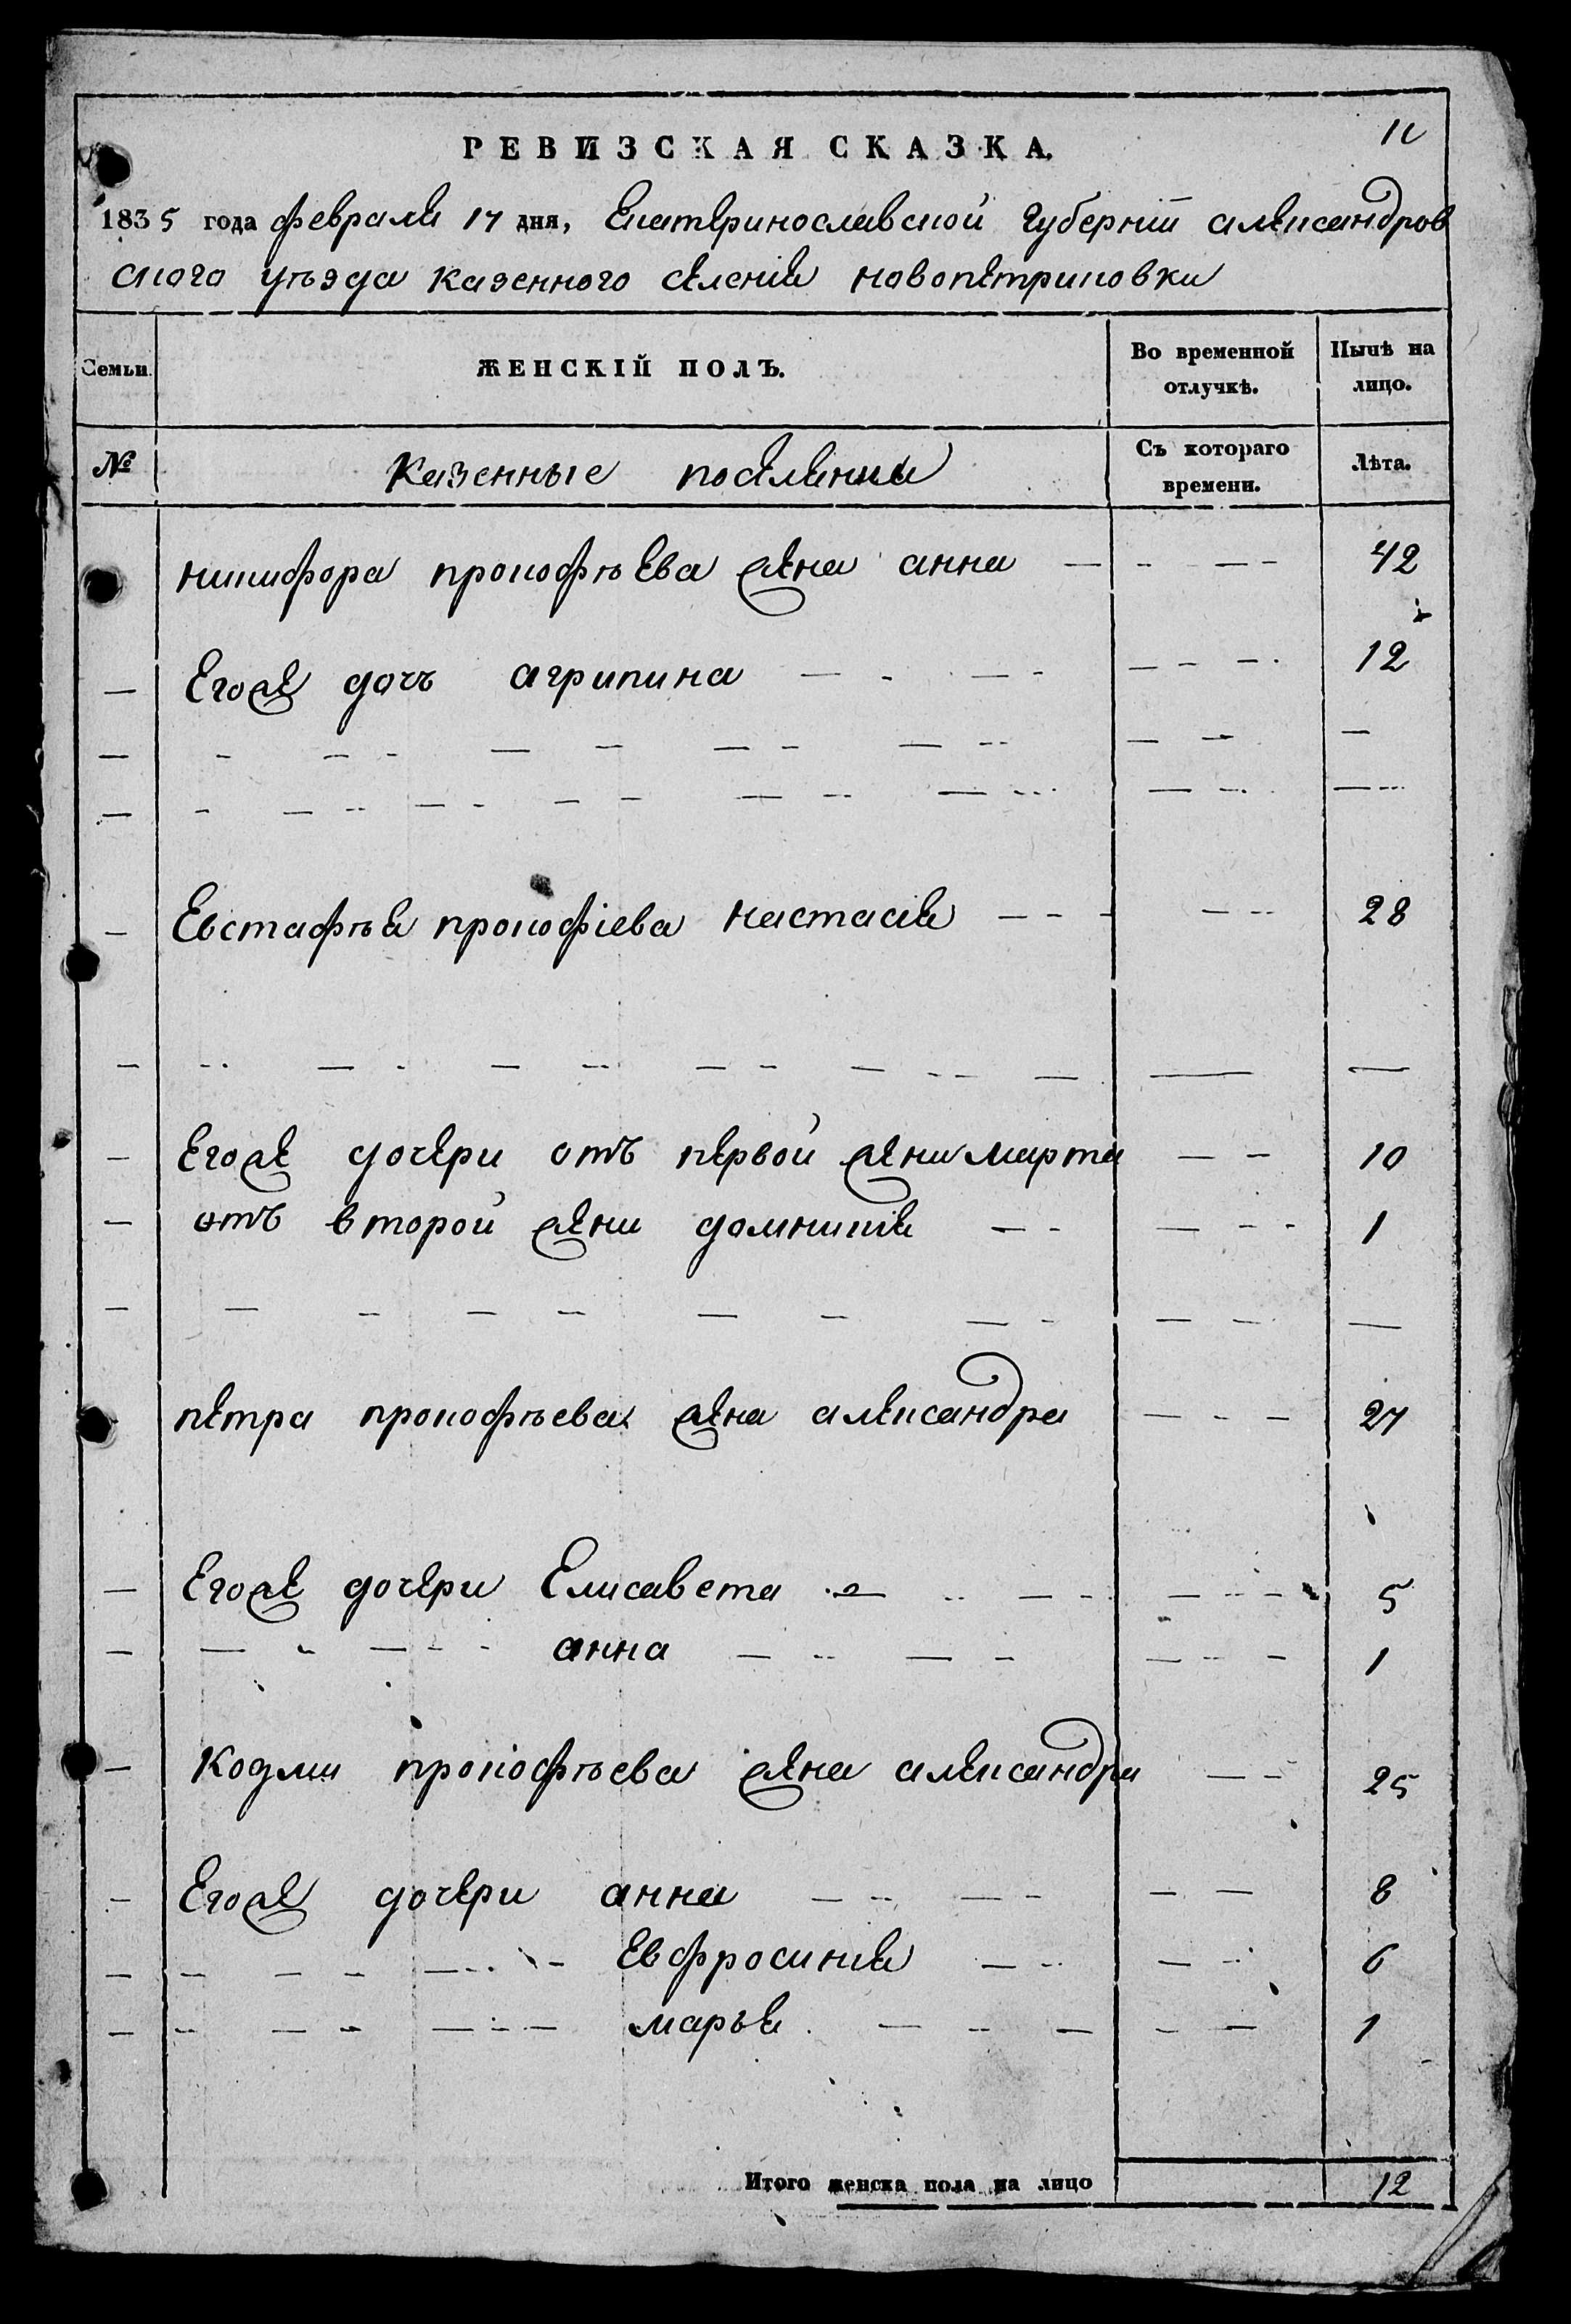 РЕВИЗСКАЯ СКАЗКА.
1835 года февраля 17 дня, Екатеринославской губерніи александров
скаго уъзда казенного селенія новопетриковки
Семьи.
ЖЕНСКІЙ ПОЛЪ.
Во временной отлучкѣ.
Нынѣ на лицо.
№
Казенные поселяне
Съ котораго времени.
Лѣта.
никифора прокофъева жена анна — - — - 42
— Егоже дочъ агрипина — - — - — - — - 12
— Евстафъя прокофіева настасія - - - — - 28
— Егоже дочери отъ первой жени марта — - 10
— отъ второй жени домникія — - — - - 1
петра прокофъева жена александра — - - 27
— Егоже дочери Елисавета — - — - — - - 5
— — - — - - анна — - — - — - - 1
— Козми прокофъева жена александра — - 25
— Егоже дочери анна — - — - — - 8
— - — - — - - Евфросинія — - — - 6
— - — - — - — марья — - — - — 1
Итого женска пола на лицо 12